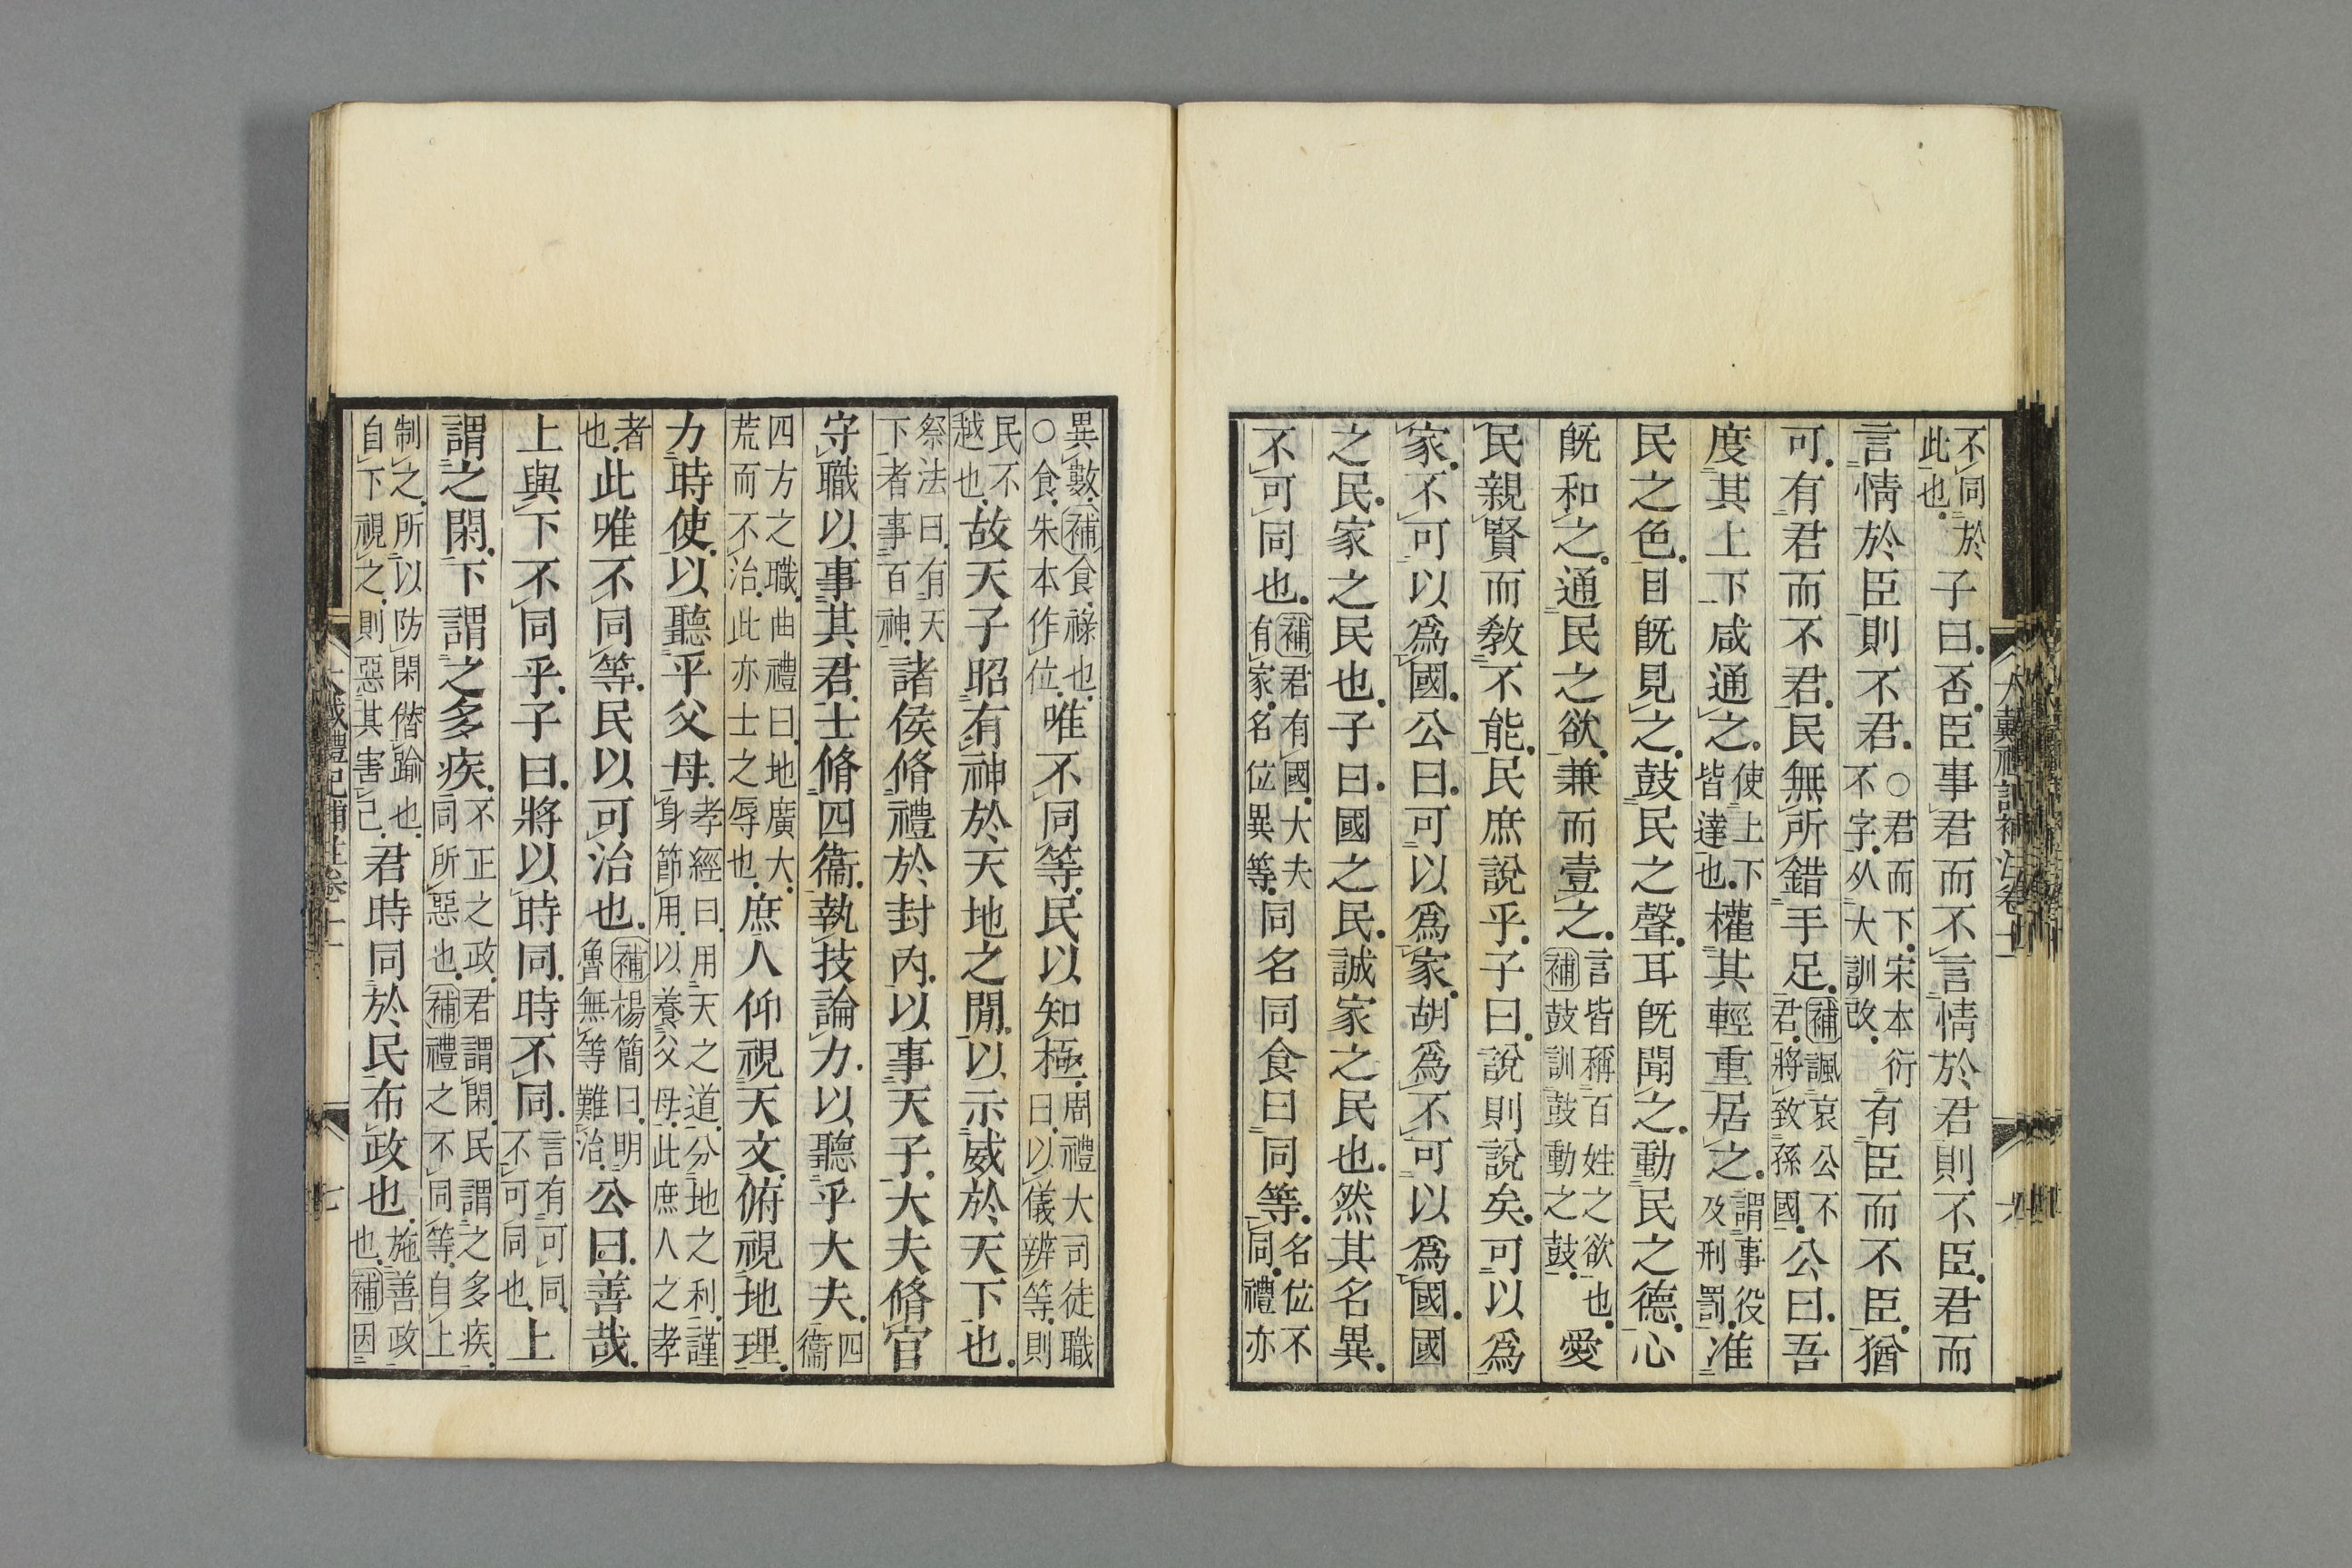 不同於此也子曰否臣事君而不言情於君則不臣君而
言情於臣則不君○君而下宋本衍不字从大訓改有臣而不臣猶
可有君而不君民無所錯手足補諷哀公不君將致孫國公曰吾
度其上下咸通之使上下皆達也權其輕重居之謂事役及刑罰准
民之色目旣見之鼓民之聲耳旣聞之動民之德心
旣和之通民之欲兼而壹之言皆稱百姓之欲也補鼓訓鼓動之鼓愛
民親賢而敎不能民庶說乎子曰說則說矣可以爲
家不可以爲國公曰可以爲家胡爲不可以爲國國
之民家之民也子曰國之民誠家之民也然其名異
不可同也補君有國大夫有家名位異等同名同食曰同等名位不同禮亦
異數補食祿也○食朱本作位唯不同等民以知極周禮大司徒職曰以儀辨等則
民不越也故天子昭有神於天地之閒以示威於天下也
祭法曰有天下者事百神諸侯脩禮於封內以事天子大夫脩官
守職以事其君士脩四衞執技論力以聽乎大夫四衞
四方之職曲禮曰地廣大荒而不治此亦士之辱也庶人仰視天文俯視地理
力時使以聽乎父母孝經曰用天之道分地之利謹身節用以養父母此庶人之孝
者也此唯不同等民以可治也補楊簡曰明魯無等難治公曰善哉
上與下不同乎子曰將以時同時不同言有可同不可同也上
謂之閑下謂之多疾不正之政君謂閑民謂之多疾同所惡也補禮之不同等自上
制之所以防閑僭踰也自下視之則惡其害己君時同於民布政也施善政也補因